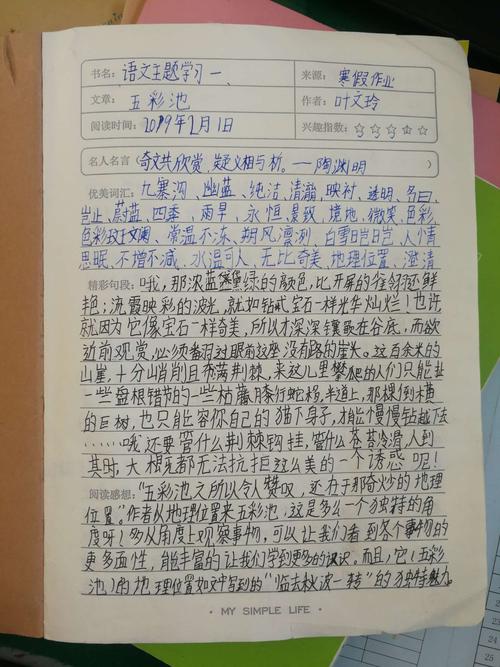 书名: 语文主题学习一 来源: 寒假作业
文章: 五彩池 作者: 叶文玲
阅读时间: 2019年2月1日 兴趣指数: ☆☆☆☆☆
名人名言 (奇文共欣赏,疑义相与析。——陶渊明
优美词汇: 九寨沟、幽蓝、纯洁、清澈、映衬、透明、名曰、
岂止、蔚蓝、四季、雨旱、永恒景致、境地、微笑、色彩、
色彩斑斓、常温不冻、朔风凛冽、白雪皑皑、人情
思眠、不增不减、水温可人、无比奇美、地理位置、澄清
精彩句段: 哦,那浓蓝堡绿的颜色,比开屏的雀翎还鲜
艳;流霞映彩的波光,就如钻贰宝石一样光华灿烂!也许,
就因为它像宝石一样奇美,所以才深深镶嵌在谷底,而欲
近前观赏,必须翻过眼前这座没有路的崖头。这百余米的
山崖,十分肖削且布满荆棘,来这儿里攀爬的人们只能拄
一些盘根错节的一些枯藤
的巨树,也只能容你自己的猫下身子,才能慢慢钻越下去
……哦!还要管什么荆棘钩挂,管什么苍苔冷滑,人到
其时,大概谁都无法抗拒这么美的一个诱惑呢!
阅读感想: “五彩池之所以令人赞叹,还在于那奇妙的地理
位置。”作者从地理位置来五彩池,这是多么一个独特的角
度呀!多从角度上观察事物,可以让我们看到各个事物的
更多面性,能丰富的让我们学到更多的知识。而且,它(五彩
池)的地理位置如文中写到的“临去秋波一转”的独特魅力。
• MY SIMPLE LIFE •